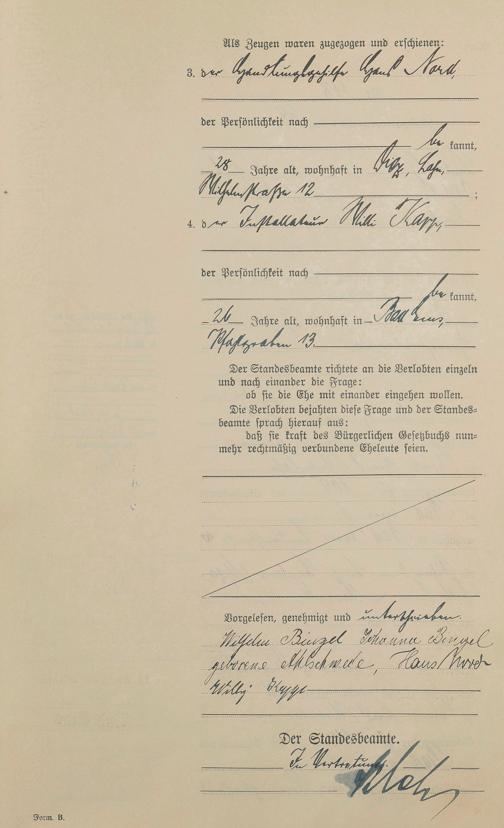 Als Zeugen waren zugezogen und erschienen:
3. der Handlungsgehilfe Hans Nord,
der Persönlichkeit nach
be kannt,
28 Jahre alt, wohnhaft in Diez, Lahn,
Wilhelmstraße 12 ;
4. der Installateur Willi
der Persönlichkeit nach
be kannt,
26 Jahre alt, wohnhaft in Bad Ems,
Pfahlgraben 13.
Der Standesbeamte richtete an die Verlobten einzeln
und nach einander die Frage:
ob sie die Ehe mit einander eingehen wollen.
Die Verlobten bejahten diese Frage und der Standes-
beamte sprach hierauf aus:
daß sie kraft des Bürgerlichen Gesetzbuchs nun-
mehr rechtmäßig verbundene Eheleute seien.
Vorgelesen, genehmigt und unterschrieben.
Wilhelm Bingel Johanna Bingel
geborene Ahlschwede, Hans Nord
Willy
Der Standesbeamte.
In Vertretung.
Form. B.